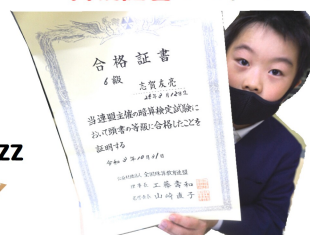 合格証書
6級
志賀友亮
当連盟主催の暗算検定試験に
おいて頭書の等級に合格したことを
証明する
公益社団法人 全国珠算教育連盟
理事長 工藤寿和
山崎直子
zz